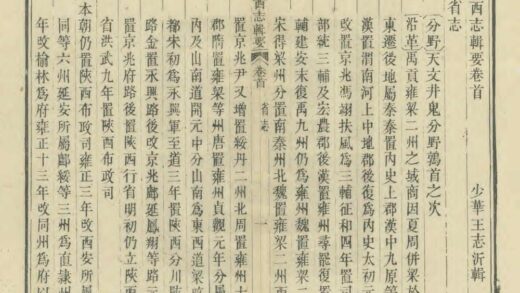 西志輯要卷首 少華王志沂輯
省志
分野 天文井鬼分野鶉首之次
沿革 禹貢雍梁二州之域商因夏周併梁於
東遷後地屬秦秦置內史上郡漢中九原等
漢置渭南河上中地郡後復爲內史太初三
改置京兆馮翊扶風爲三輔征和四年置司
部統三輔及宏農郡後漢置雍州尋罷復置
輔建安末復禹九州仍爲雍州魏置雍秦二
宋得梁州分置南秦州北魏置雍梁二州西
西志輯要 卷首 省志 一
置京兆尹又增置綏丹二州北周置雍州
郡隋置雍梁等州唐置雍州貞觀元年分屬
內及山南道開元中分山南爲東西道梁
都宋初爲永興軍至道三年置陝西分川陝
路金置永興路後改京兆鄜延鳳翔等路元
置京兆府路後置陝西行省明初仍立陝西
省洪武九年置陝西布政司
本朝仍置陝西布政司雍正三年改西安所屬
同等六州延安所屬鄜綏等三州爲直隸州
年改榆林爲府雍正十三年改同州爲府以